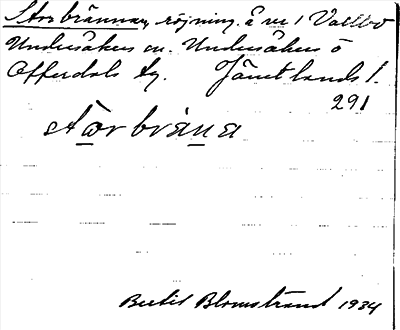 Storbrännan, röjning å ve 1 Vallbo
Undersåkers sn. Undersåkers o
Offerdals tg. Jämtlands l.
291
stòrbràna
Bertil Blomstrand 1934